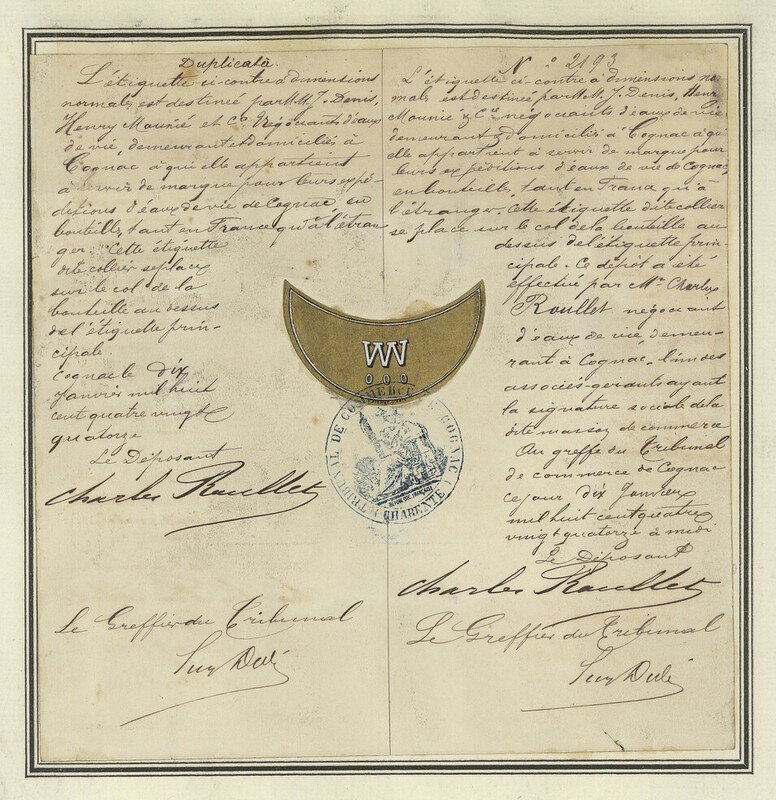 Duplicata.
L'étiquette ci-contre à dimensions
normales est destinée par M.M. J. Denis,
Henry Mounié et Cie Négociants d'eaux
de vie, demeurant et domiciliés à
Cognac à qui elle appartient
à servir de marque pour leurs expé-
ditions d'eaux de vie de Cognac en
bouteilles, tant en France qu'à l'étran
ger. Cette étiquette
dite collier se place
sur le col de la
bouteille au dessus
de l'étiquette prin-
cipale.
Cognac le dix
Janvier mil huit
cent quatre vingt
quatorze
Le Déposant
Charles Roullet
Le Greffier du Tribunal
N° 2193
L'étiquette ci-contre à dimensions nor
males est destinée par M.M. J. Denis, Henry
Mounié & Cie négociants d'eaux de vie
demeurant & domiciliés à Cognac à qui
elle appartient à servir de marque pour
leurs expéditions d'eaux de vie de Cognac
en bouteilles, tant en France qu'à
l'étranger. Cette étiquette dite collier
se place sur le col de la bouteille au
dessus de l'étiquette prin-
cipale. Ce dépôt a été
effectué par Mr Charles
Roullet négociant
d'eaux de vie, demeu-
rant à Cognac, l'un des
associés-gérants ayant
la signature sociale de la
dite maison de commerce
Au greffe du Tribunal
de commerce de Cognac
ce jour dix Janvier
mil huit cent quatre
vingt quatorze à midi
Le Déposant
Charles Roullet
Le Greffier du Tribunal
W
000
TRIBUNAL DE COMMERCE DE COGNAC
(CHARENTE)